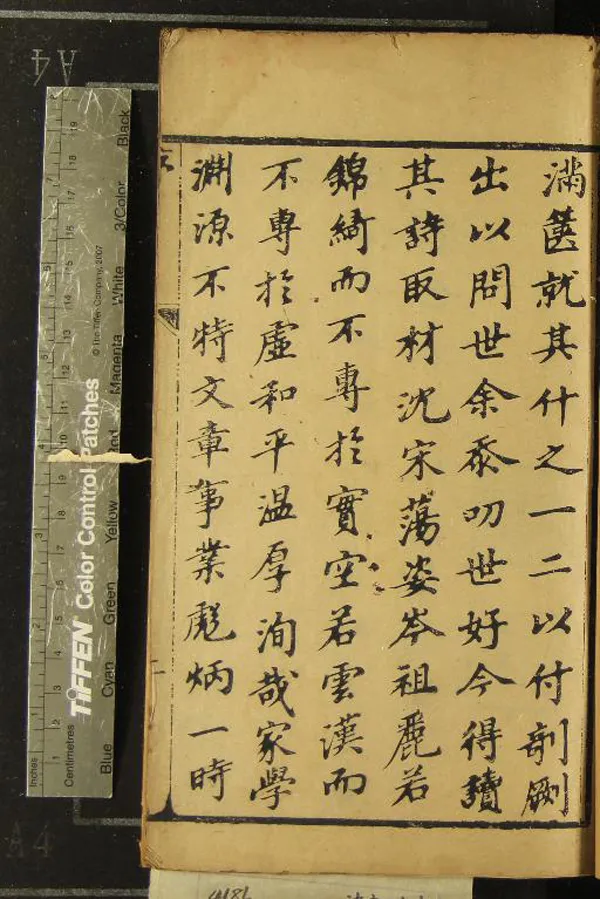 滿篋就其什之一二以付剞劂
出以問世余忝叨世好今得讀
其詩取材沈宋蕩姿岑祖麗若
錦綺而不專於實空若雲漢而
不專於虛和平温厚洵哉家學
淵源不特文章事業彪炳一時
A4
A4
Inches
Centimetres
TIFFEN Color Control Patches
© The Tiffen Company, 2007
Blue
Cyan
Green
Yellow
Magenta
White
3/Color
Black